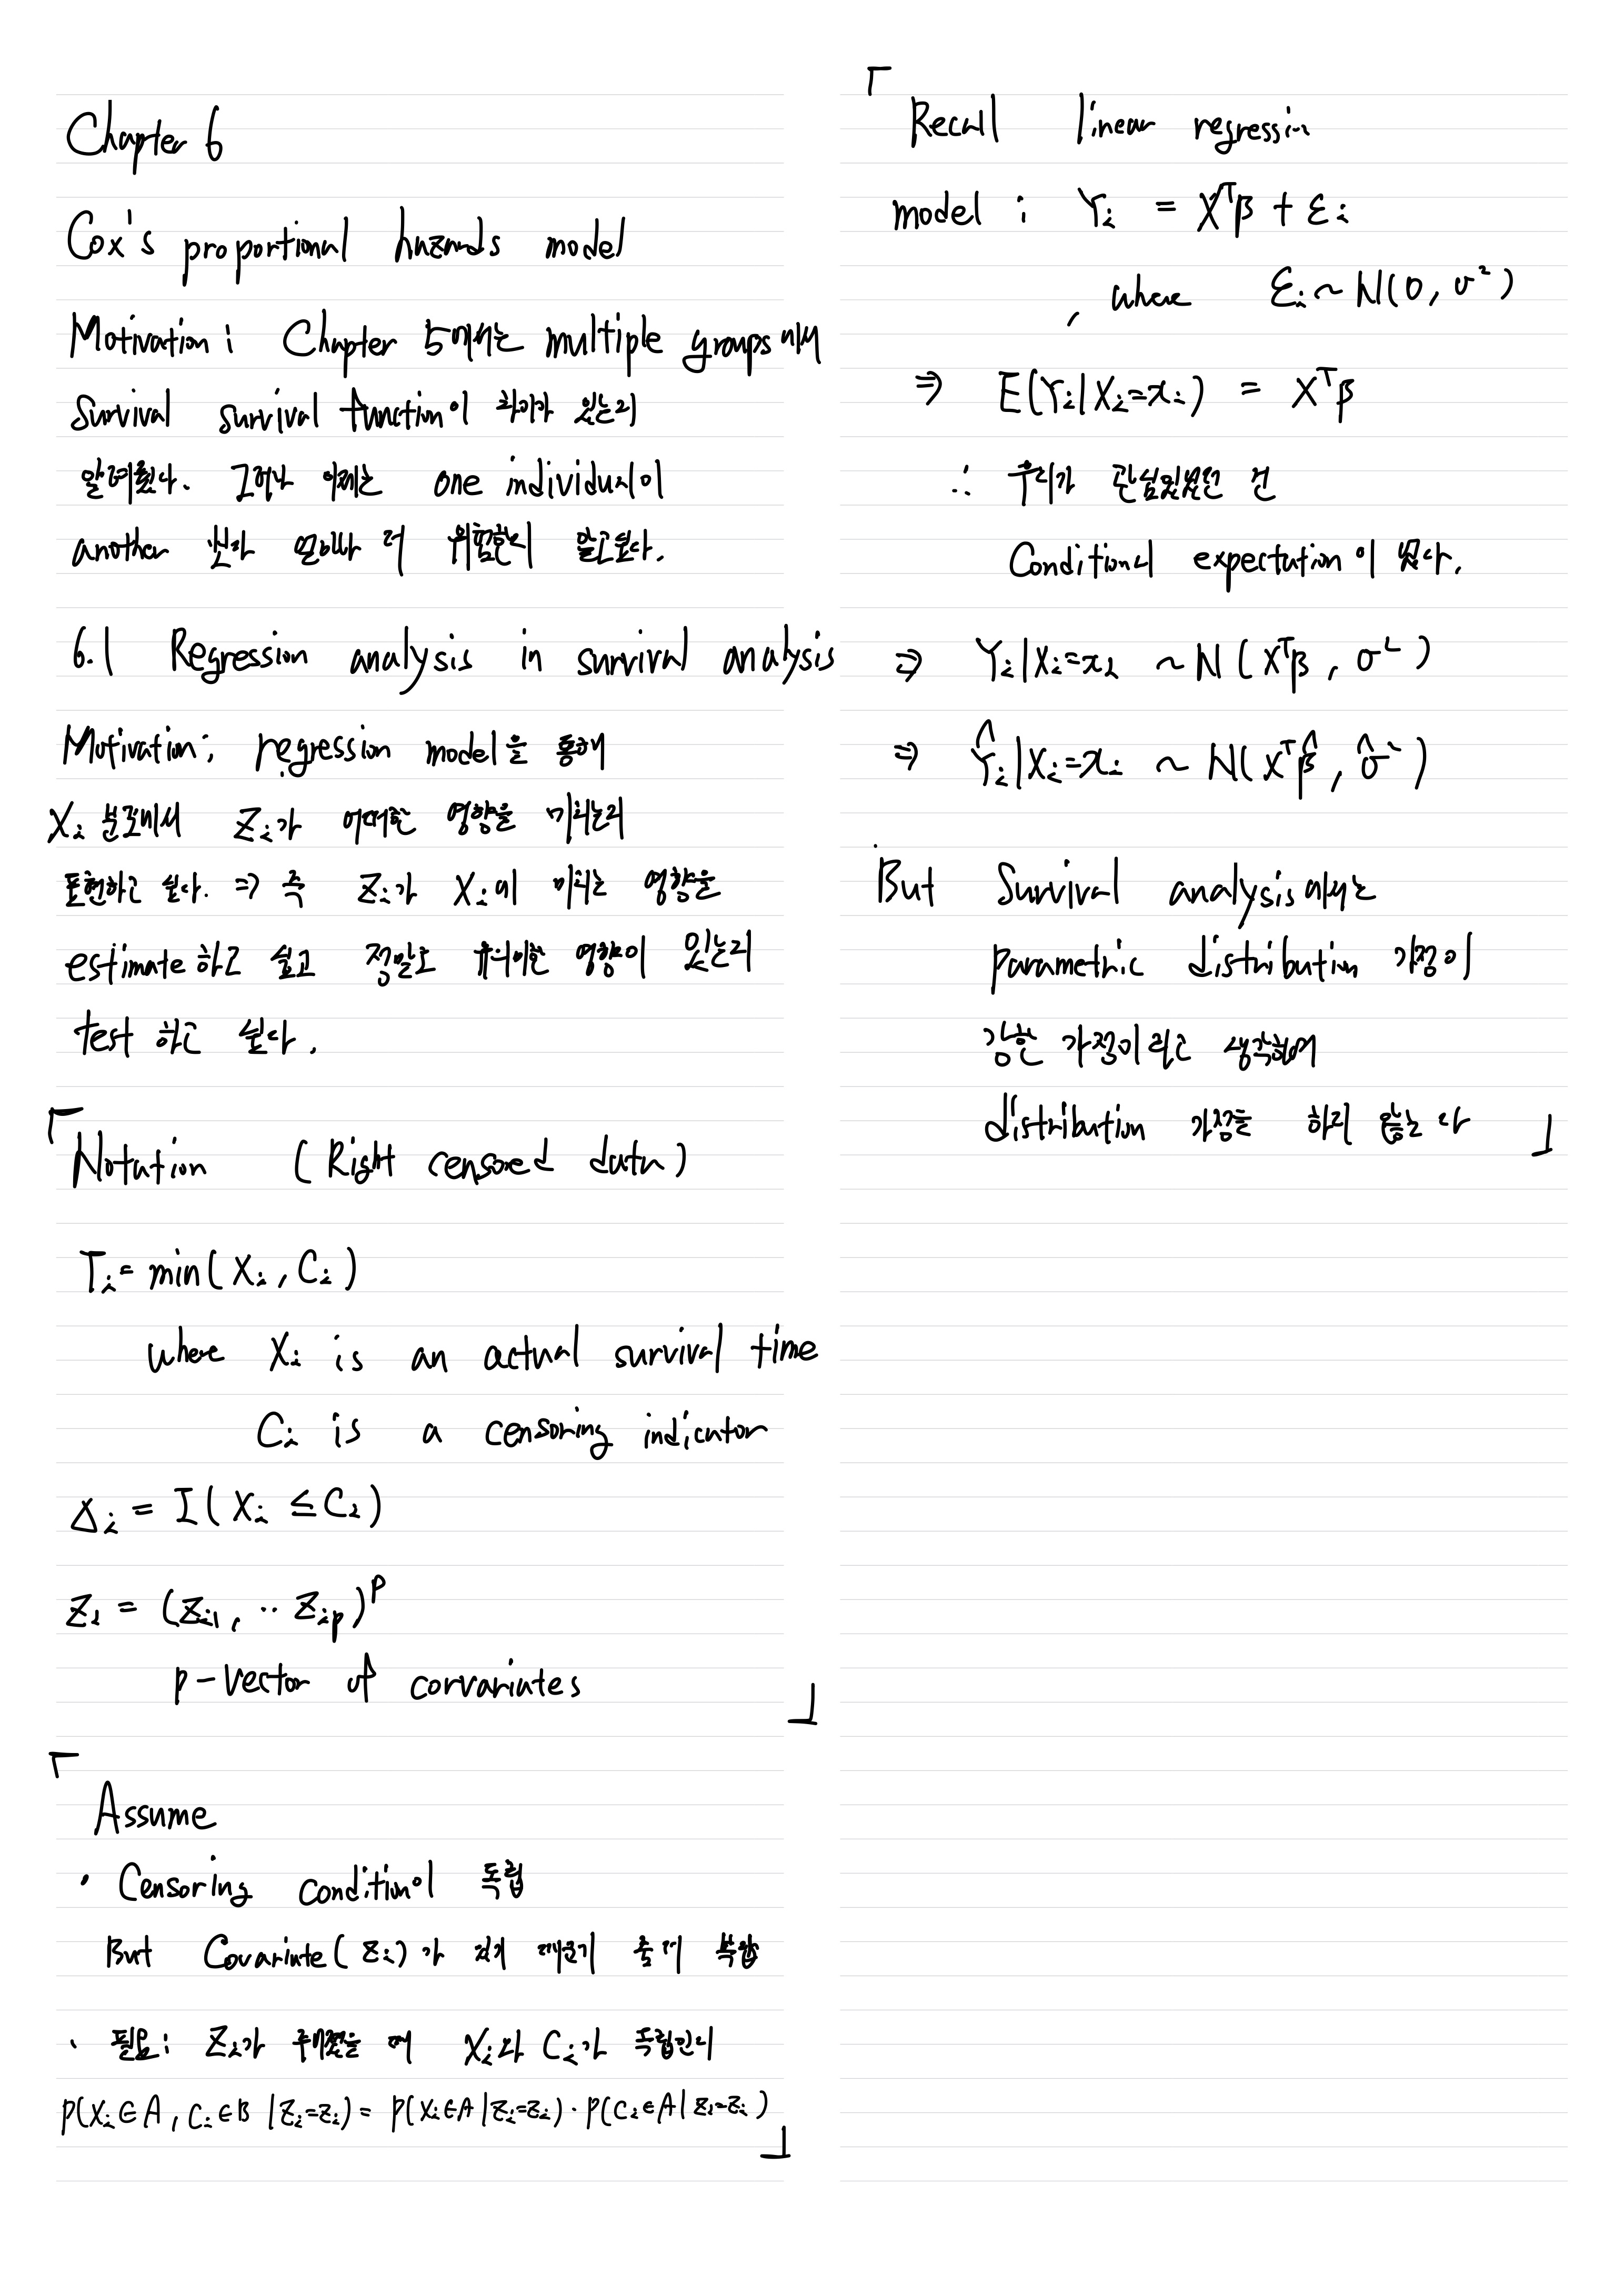 Chapter 6
Cox's proportional hazards model
Motivation : Chapter 5에서는 multiple groups에서
Survival survival function이 차이가 있는지
알려줬다. 그러나 이제는 one individual이
another 보다 얼마나 더 위험한지 알고싶다.
6.1 Regression analysis in survival analysis
Motivation; regression model을 통해
Xi 분포에서 Zi가 어떠한 영향을 미치는지
표현하고 싶다. ⇒ 즉 Zi가 Xi에 미치는 영향을
estimate 하고 싶고 정말로 유의미한 영향이 있는지
test 하고 싶다.
「Notation (Right censored data)
Ti = min(Xi, Ci)
where Xi is an actual survival time
Ci is a censoring indicator
Δi = I(Xi ≤ Ci)
Zi = (Zi1, ·· Zip)^p
p-vector of corvariates 」
「 Assume
· Censoring condition이 독립
But Covariate(Zi)가 있기 때문에 좀 더 복잡
· 필요: Zi가 주어졌을 때 Xi와 Ci가 독립인지
P(Xi∈A, Ci∈B |Zi=zi) = P(Xi∈A|Zi=zi) · P(Ci∈A|Zi=zi) 」
「 Recall linear regression
model : Yi = X^Tβ + εi
, where εi ~ N(0, σ²)
⇒ E(Yi|Xi=xi) = X^Tβ
∴ 우리가 관심있었던 건
Conditional expectation 이었다.
⇒ Yi|Xi=xi ~ N(X^Tβ, σ²)
⇒ Ŷi|Xi=xi ~ N(X^Tβ̂, σ̂²)
But Survival analysis에서는
parametric distribution 가정이
강한 가정이라고 생각하여
distribution 가정을 하지 않는다 」